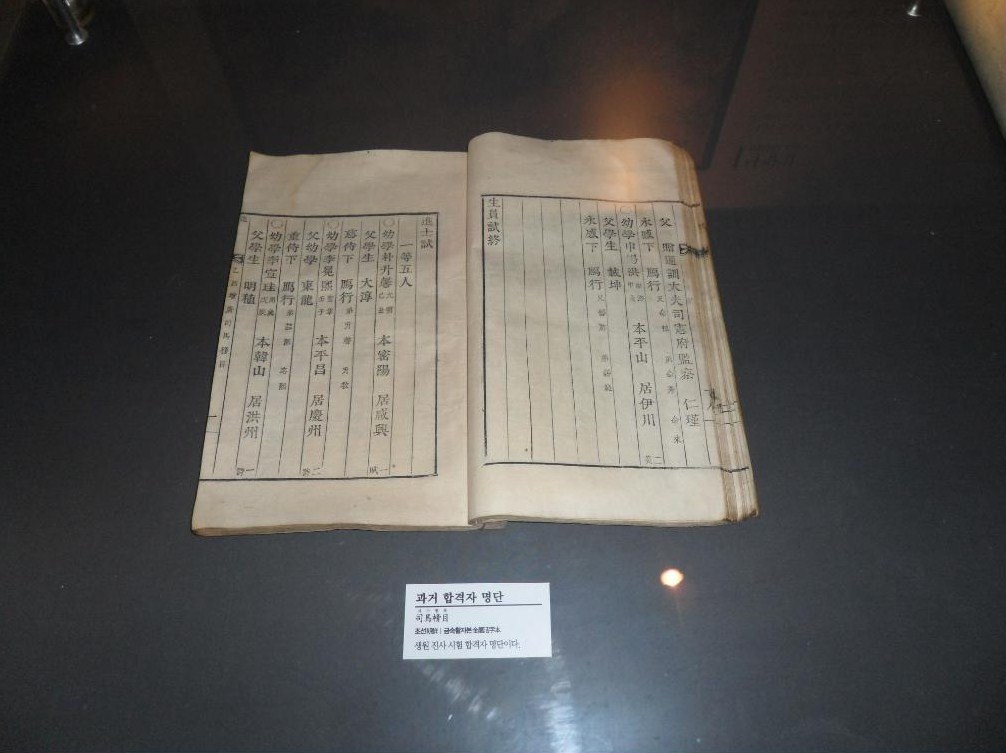 父 贈通訓大夫司憲府監察 仁瑾
永感下 鴈行
幼學申 洪 本平山 居伊川
父學生 載坤
永感下 鴈行
生員試終
進士試
一等五人
〇幼學朴升馨 本密陽 居咸興 賦一
父學生 大淳
慈侍下 鴈行
〇幼學李晃熙 本平昌 居慶州 二詩
父幼學 東龍
重侍下 鴈行
〇幼學李宣珪 本韓山 居洪州 一詩
父學生 明稙
司馬榜目
과거 합격자 명단
司馬榜目
조선 금속활자본 金屬活字本
생원 진사 시험 합격자 명단이다.